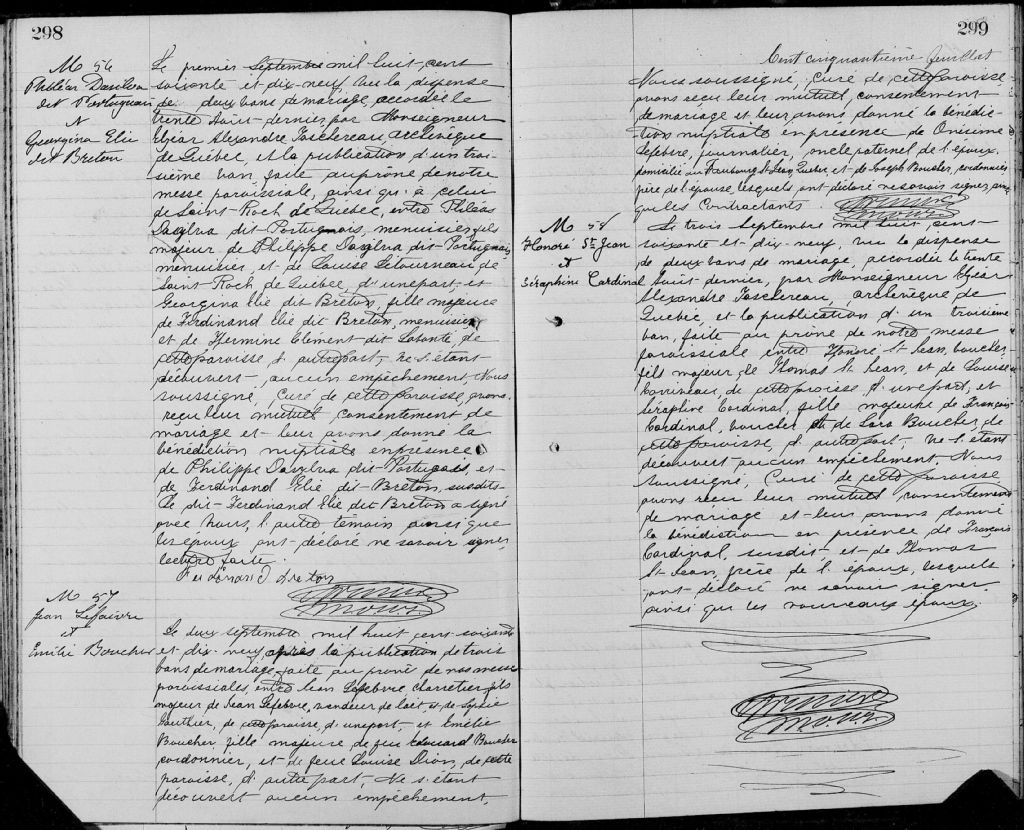 298
M 56
Philéas Dasilva
dit Portuguais
&
Georgina Elie
dit Breton
Le premier Septembre mil huit cent
soixante et dix-neuf, vu la dispense
de deux bans de mariage, accordée le
trente Août dernier, par Monseigneur
Elzéar Alexandre Taschereau, archevêque
de Québec, et la publication d'un troi-
sième ban faite au prône de notre
messe paroissiale, ainsi qu'à celui
de Saint-Roch de Québec, entre Philéas
Dasylva dit Portugais, menuisier, fils
majeur de Philippe Dasylva dit Portugais,
menuisier, et de Louise Létourneau de
Saint-Roch de Québec, d'une part, et
Georgina Elie dit Breton, fille majeure
de Ferdinand Elie dit Breton, menuisier
et de Hermine Clément dit Labonté, de
cette paroisse d'autre part, ne s'étant
découvert aucun empêchement, Nous
soussigné, Curé de cette paroisse, avons
reçu leur mutuel consentement de
mariage et leur avons donné la
bénédiction nuptiale en présence
de Philippe Dasylva dit Portugais, et
de Ferdinand Elie dit Breton, susdits.
Le dit Ferdinand Elie dit Breton a signé
avec nous, l'autre témoin ainsi que
les époux ont déclaré ne savoir signer,
lecture faite.
Ferdinand Breton
M 57
Jean Lefaivre
et
Emilie Boucher
Le deux septembre mil huit cent soixante
et dix-neuf, après la publication de trois
bans de mariage, faite au prône de nos messes
paroissiales, entre Jean Lefebvre charretier, fils
majeur de Jean Lefebvre, vendeur de lait, et de Sophie
Gauthier, de cette paroisse, d'une part, et Emélie
Boucher, fille majeure de feu Edouard Boucher
cordonnier, et de feue Louise Dion, de cette
paroisse, d'autre part, Ne s'étant
découvert aucun empêchement,
299
Cent cinquantième feuillet
Nous soussigné, Curé de cette paroisse,
avons reçu leur mutuel consentement
de mariage et leur avons donné la bénédic-
tion nuptiale en présence de Onésime
Lefebvre, journalier, oncle paternel de l'époux,
domicilié au Faubourg St Jean, Québec, et de Joseph Boucher, cordonnier,
père de l'épouse, lesquels ont déclaré ne savoir signer, ainsi
que les Contractants.
M 58
Honoré St Jean
et
Séraphine Cardinal
Le trois Septembre mil huit cent
soixante et dix-neuf, vu la dispense
de deux bans de mariage, accordée le trente
Août dernier, par Monseigneur Elzéar
Alexandre Taschereau, archevêque de
Québec, et la publication d'un troisième
ban, faite au prône de notre messe
paroissiale entre Honoré St Jean, boucher,
fils majeur de Thomas St Jean, et de Louise
de cette paroisse d'une part, et
Séraphine Cardinal, fille majeure de François
Cardinal, boucher et de Boucher, de
cette paroisse, d'autre part, Ne s'étant
découvert aucun empêchement, Nous
soussigné, Curé de cette paroisse
avons reçu leur mutuel consentement
de mariage et leur avons donné
la bénédiction en présence de François
Cardinal, susdit, et de Thomas
St Jean, frère de l'époux, lesquels
ont déclaré ne savoir signer
ainsi que les nouveaux époux.